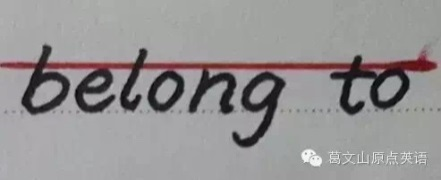 belong to
葛文山原点英语